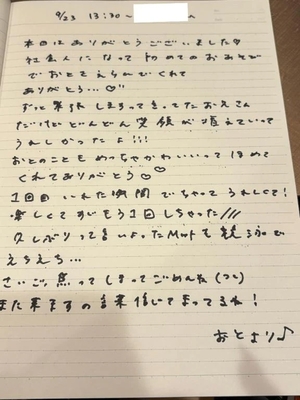 9/23 13:30〜
本日はありがとうございました♡
社会人になって初めてのおあそび
でおとをえらんでくれて
ありがとう…♡
ずっと緊張しますって言ってたおにさん
だけどどんどん笑顔が増えていって
うれしかったよ!!!
おとのこともめっちゃかわいいってほめて
くれてありがとう♡♡
1回目いれた瞬間でちゃってうれしくて!
楽しくてすぐもう1回しちゃった///
久しぶりって言いよったMットも
えちえち...
さいご焦ってしまってごめんね(つ)
また来ますの言葉信じてまってるね!
おとより♪